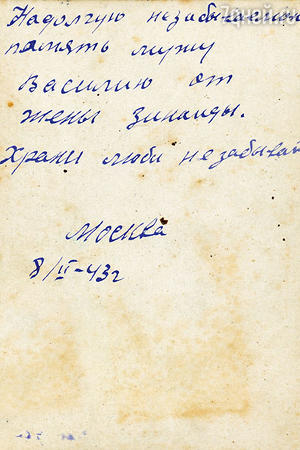 7дней.ru
Надолгую незабываемую
память мужу
Василию от
жены Зинаиды.
Храни люби незабывай
Москва
8/II-43г